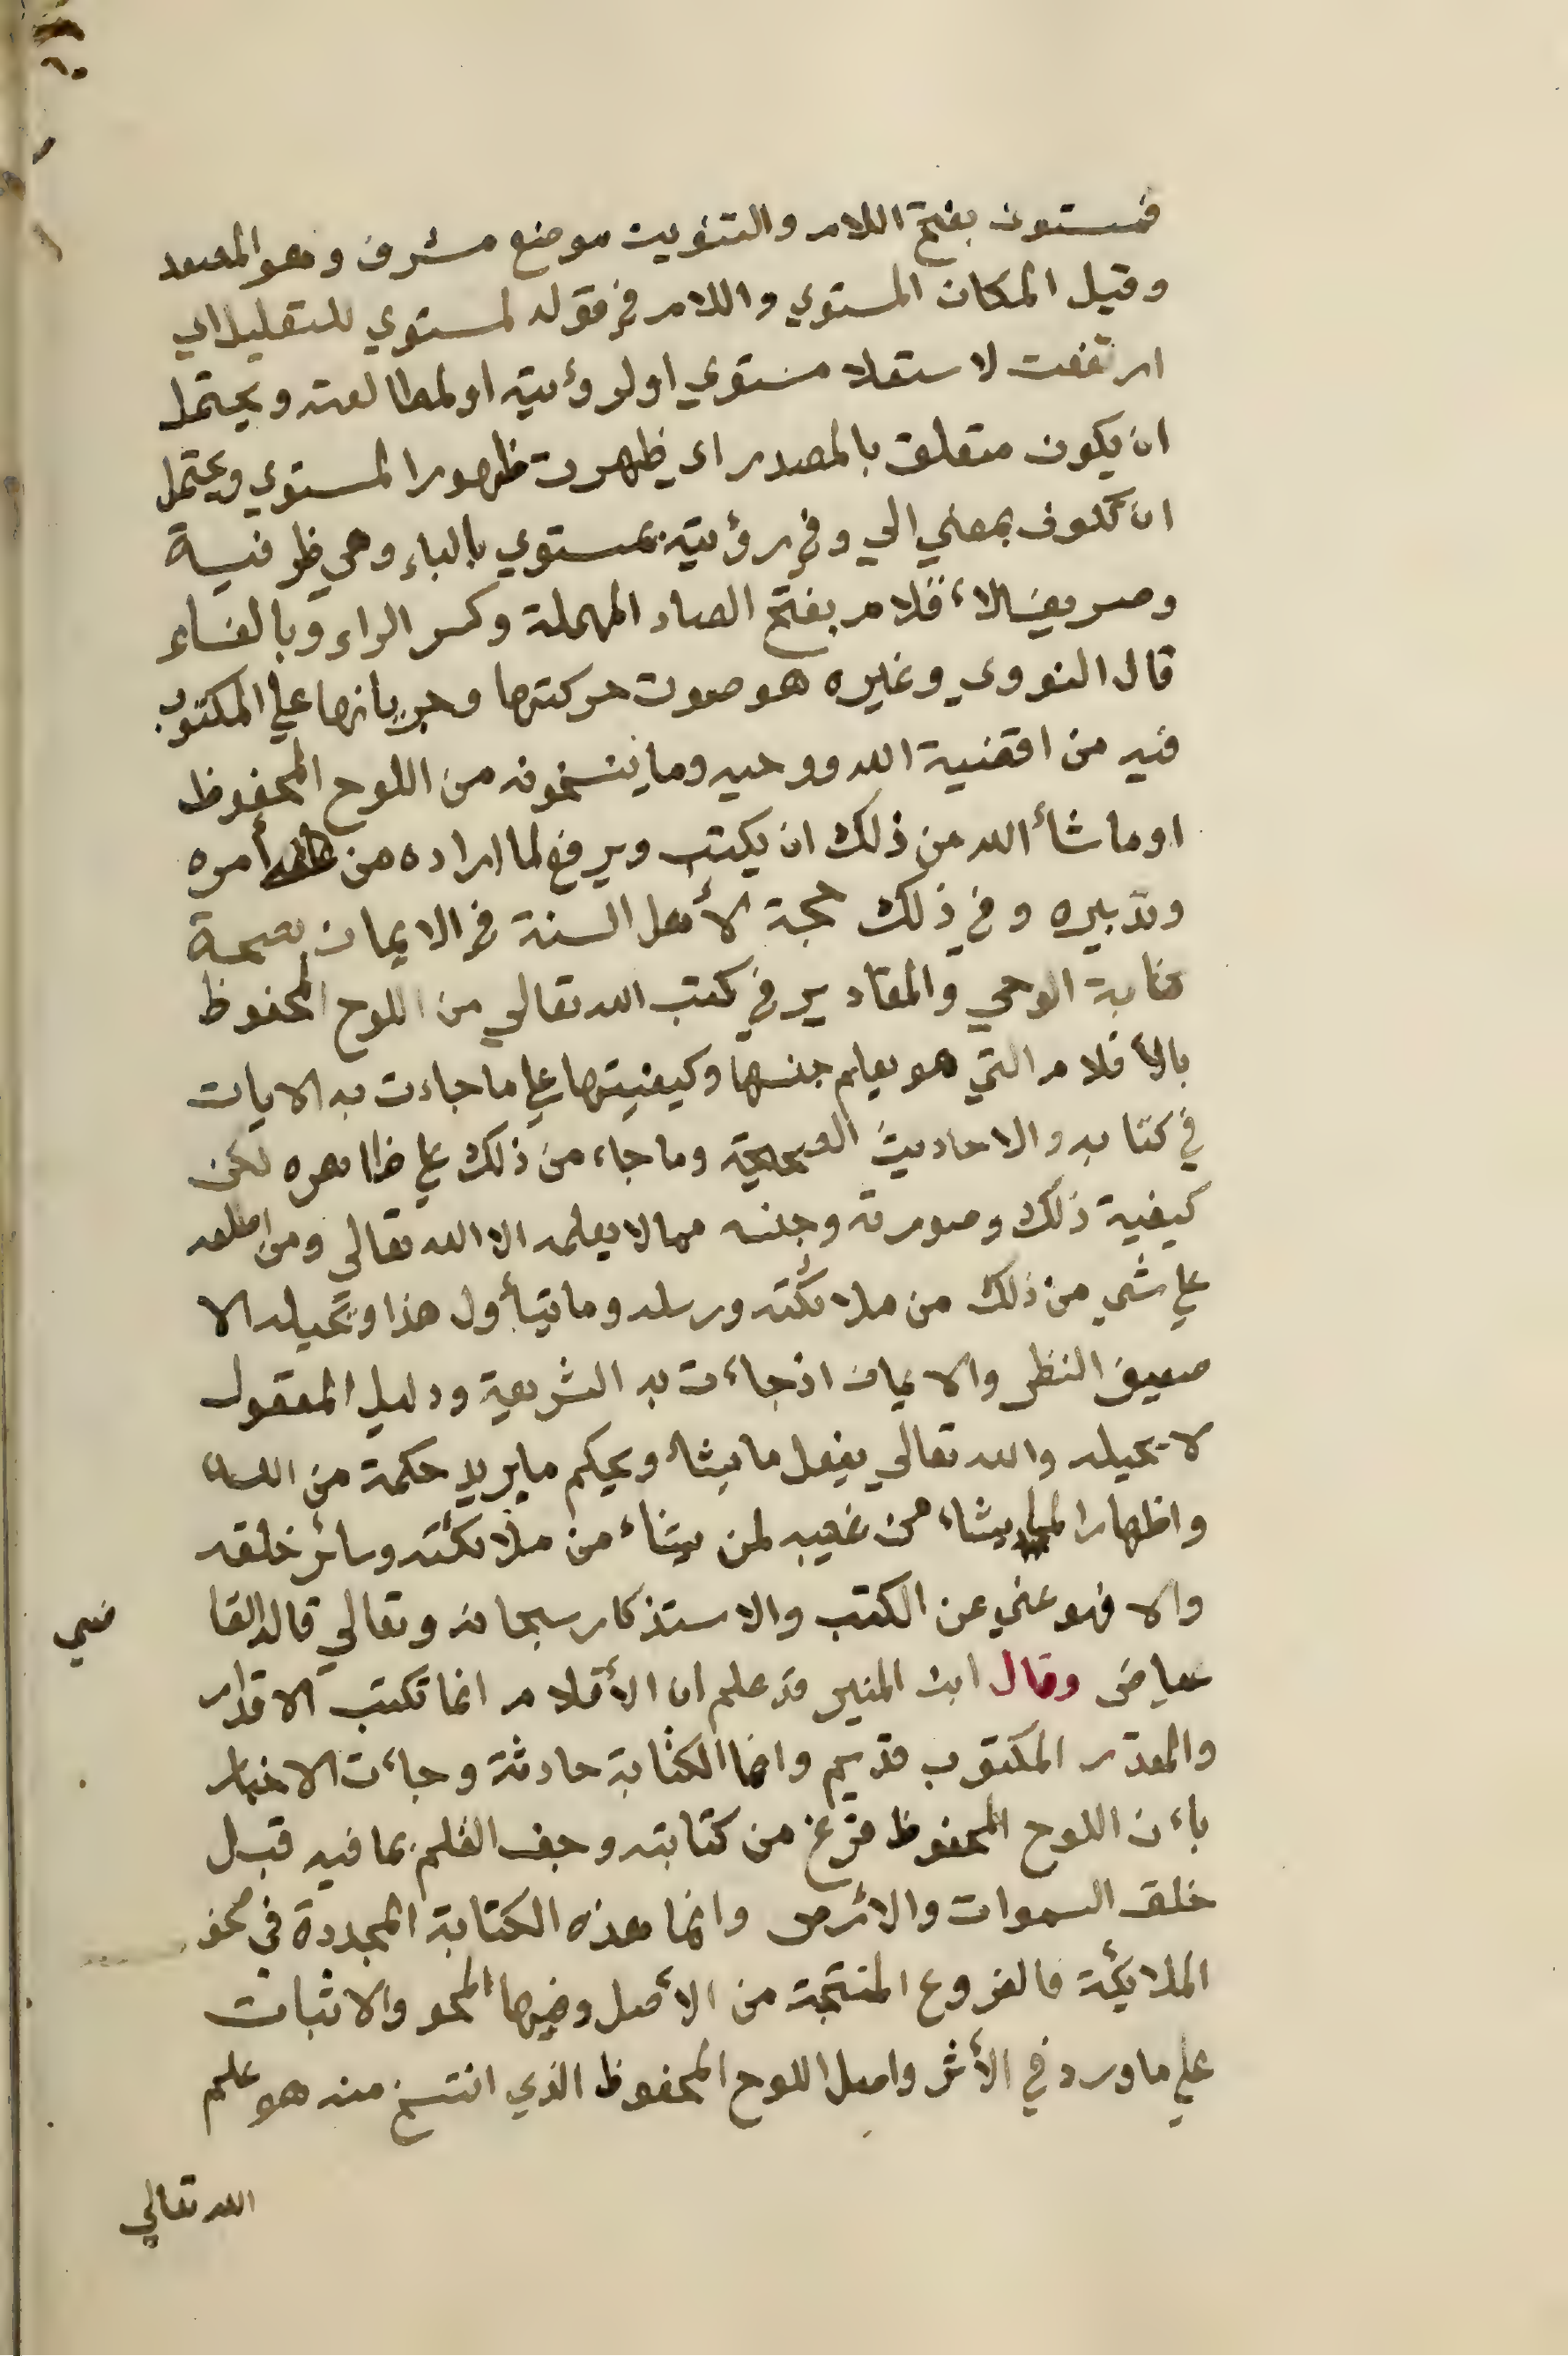 فمستون بفتح اللام والتنوين موضع مشرف وهو المصعد
وقيل المكان المستوي واللام في قوله لمستوي للتعليل اي
ارتفعت لاستعلا مستوي اولرؤيته اولمطالعته ويحتمل
ان يكون متعلق بالمصدر اي ظهرت ظهورا لمستوي ويحتمل
ان تكون بمعني الي وفي رؤية بمستوي بالباء وهي ظرفية
وصريف الاقلام بفتح الصاد المهملة وكسر الراء وبالفاء
قال النووي وغيره هو صوت حركتها وجريانها علي المكتوب
فيه من اقضية الله ووحيه وما ينسخونه من اللوح المحفوظ
اوما شأ الله من ذلك ان يكتب ويرفع لما اراده من أمره
وتدبيره وفي ذلك حجة لأهل السنة في الايمان بصحة
كتابة الوحي والمقادير في كتب الله تعالي من اللوح المحفوظ
بالأقلام التي هو يعلم جنسها وكيفيتها علي ما جاءت به الايات
في كتابه والاحاديث الصحيحة وما جاء من ذلك علي ظاهره لكن
كيفية ذلك وصورته وجنسه مما لا يعلمه الا الله تعالي ومن اطلعه
علي شي من ذلك من ملائكته ورسله وما يتأول هذا ويحيله الا
ضعيف النظر والايمان اذ جاءت به الشريعة ودليل المعقول
لا يحيله والله تعالي يفعل ما يشأ ويحكم ما يريد حكمة من الله
واظهارا لما يشاء من غيبه لمن يشاء من ملائكته وسائر خلقه
والا فهو غني عن الكتب والاستذكار سبحانه وتعالي قاله القا
ضي
عياض وقال ابن المنير قد علم ان الأقلام انما تكتب الاقدار
والمقدر المكتوب قديم وانما الكتابة حادثة وجاءت الاخبار
باءن اللوح المحفوظ فرغ من كتابته وجف القلم بما فيه قبل
خلق السموات والارض وانما هذه الكتابة المجددة في صحف
الملائكة فالفروع المنتجة من الأصل وفيها المحو والاثبات
علي ما ورد في الأثر واصل اللوح المحفوظ الذي انتسخ منه هو علم
الله تعالي